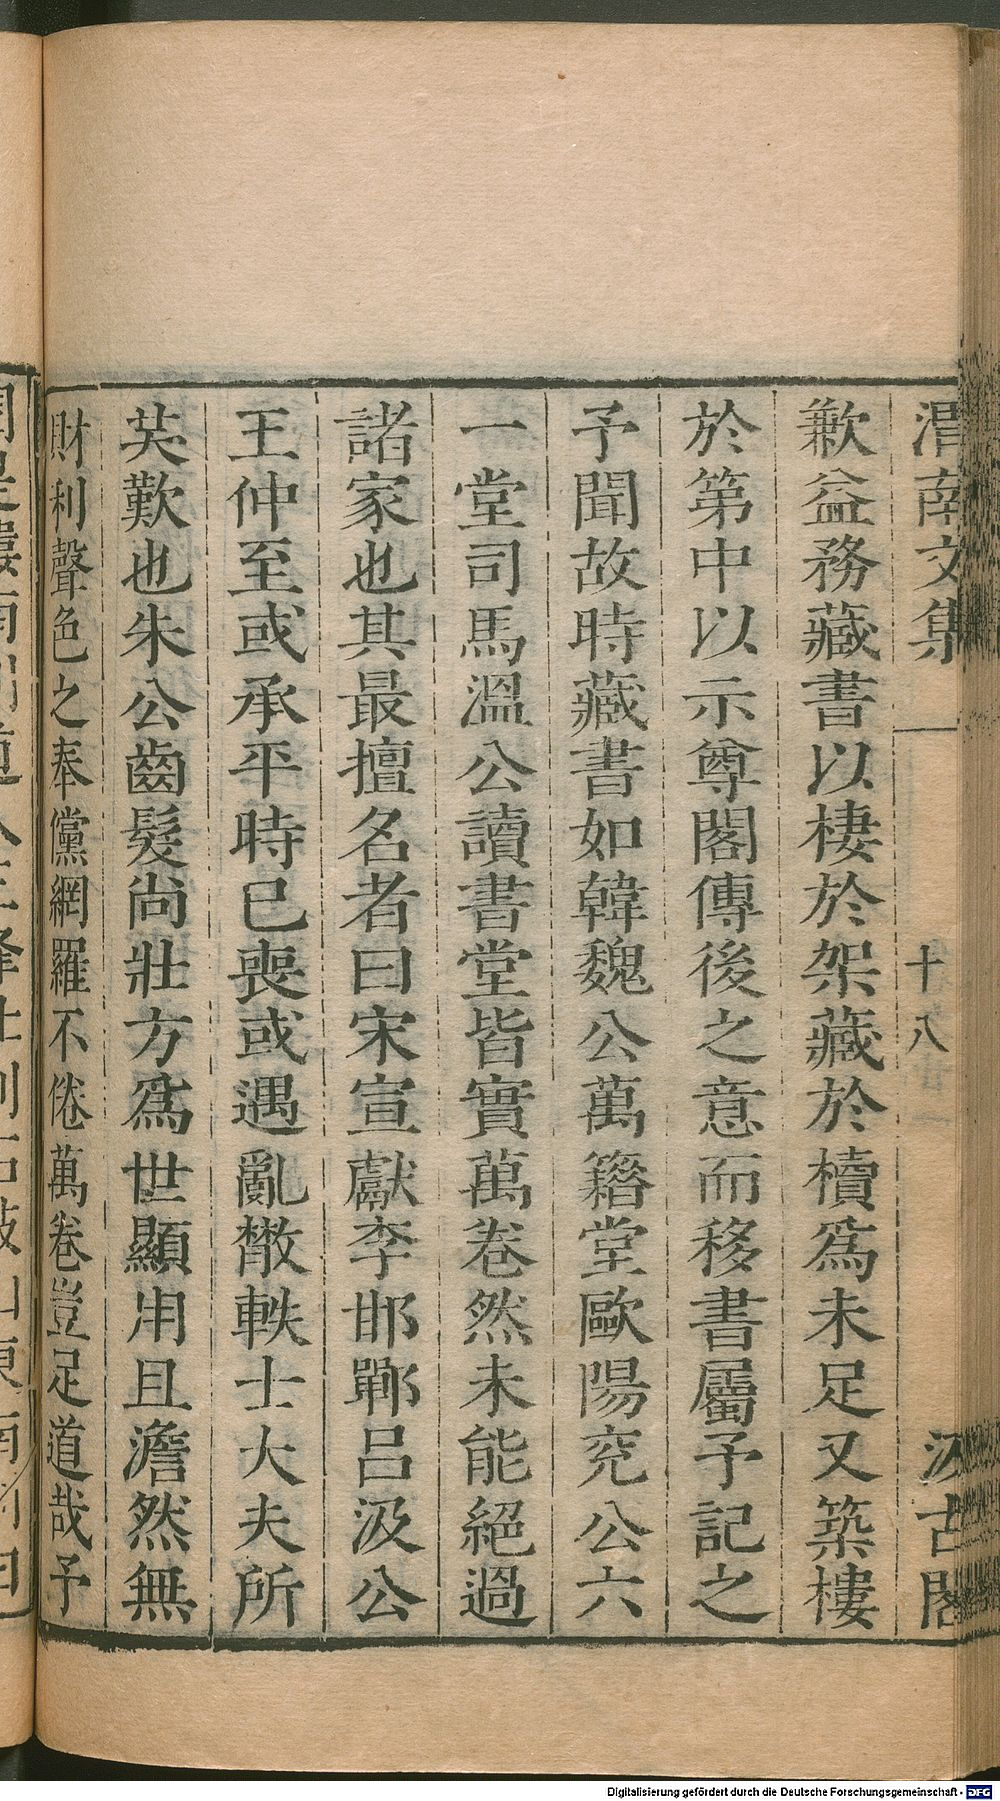 渭南文集 十八 汲古閣
歉益務藏書以棲於架藏於櫝爲未足又築樓
於第中以示尊閣傳後之意而移書屬予記之
予聞故時藏書如韓魏公萬籍堂歐陽兖公六
一堂司馬溫公讀書堂皆實萬卷然未能絕過
諸家也其最擅名者曰宋宣獻李邯鄲呂汲公
王仲至或承平時已喪或遇亂散軼士大夫所
共歎也朱公齒髮尚壯方爲世顯用且澹然無
財利聲色之奉儻網羅不倦萬卷豈足道哉予
Digitalisierung gefördert durch die Deutsche Forschungsgemeinschaft - DFG